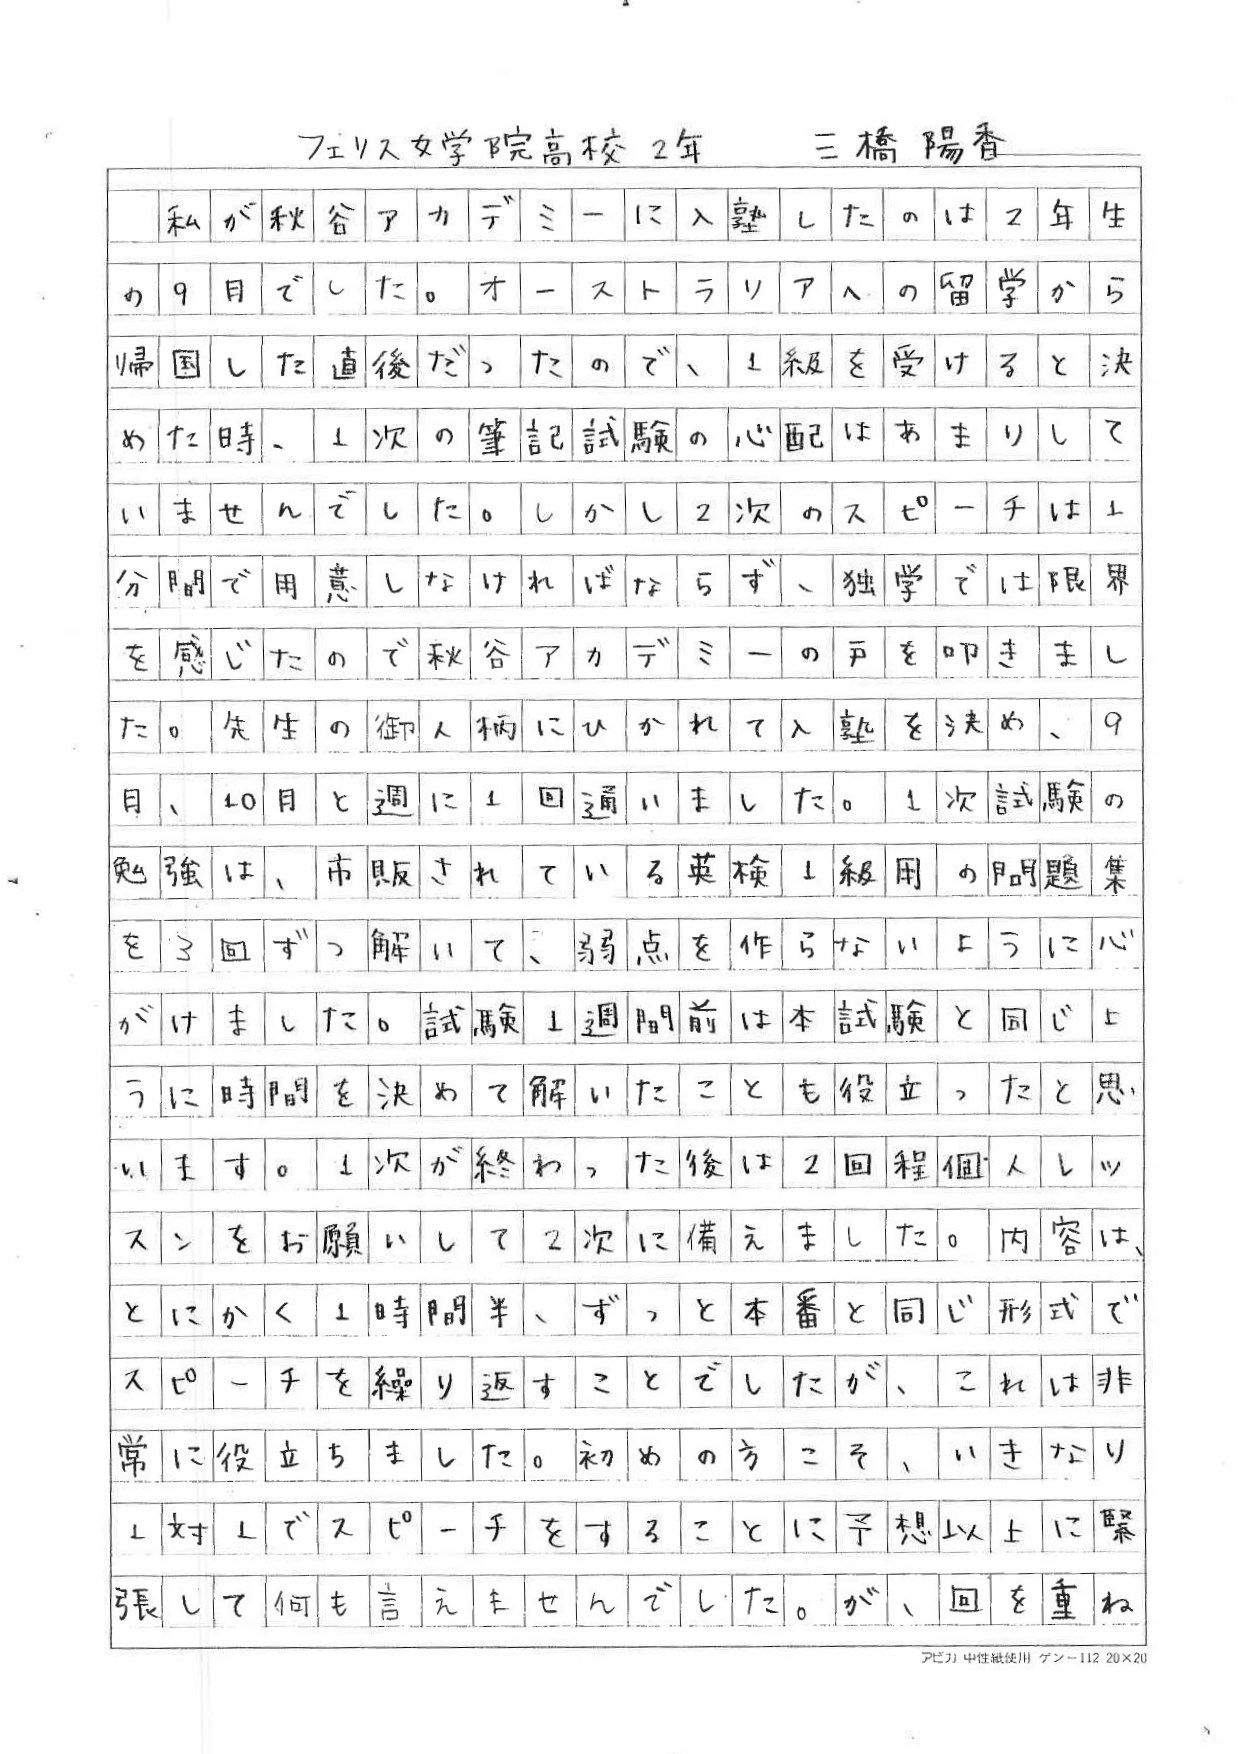 フェリス女学院高校 2年 三橋 陽香
私が秋谷アカデミーに入塾したのは2年生
の9月でした。オーストラリアへの留学から
帰国した直後だったので、1級を受けると決
めた時、1次の筆記試験の心配はあまりして
いませんでした。しかし2次のスピーチは1
分間で用意しなければならず、独学では限界
を感じたので秋谷アカデミーの戸を叩きまし
た。先生の御人柄にひかれて入塾を決め、9
月、10月と週に1回通いました。1次試験の
勉強は、市販されている英検1級用の問題集
を3回ずつ解いて、弱点を作らないように心
がけました。試験1週間前は本試験と同じよ
うに時間を決めて解いたことも役立ったと思
います。1次が終わった後は2回程個人レッ
スンをお願いして2次に備えました。内容は、
とにかく1時間半、ずっと本番と同じ形式で
スピーチを繰り返すことでしたが、これは非
常に役立ちました。初めの方こそ、いきなり
1対1でスピーチをすることに予想以上に緊
張して何も言えませんでした。が、回を重ね
アピカ 中性紙使用 ゲンー112 20×20